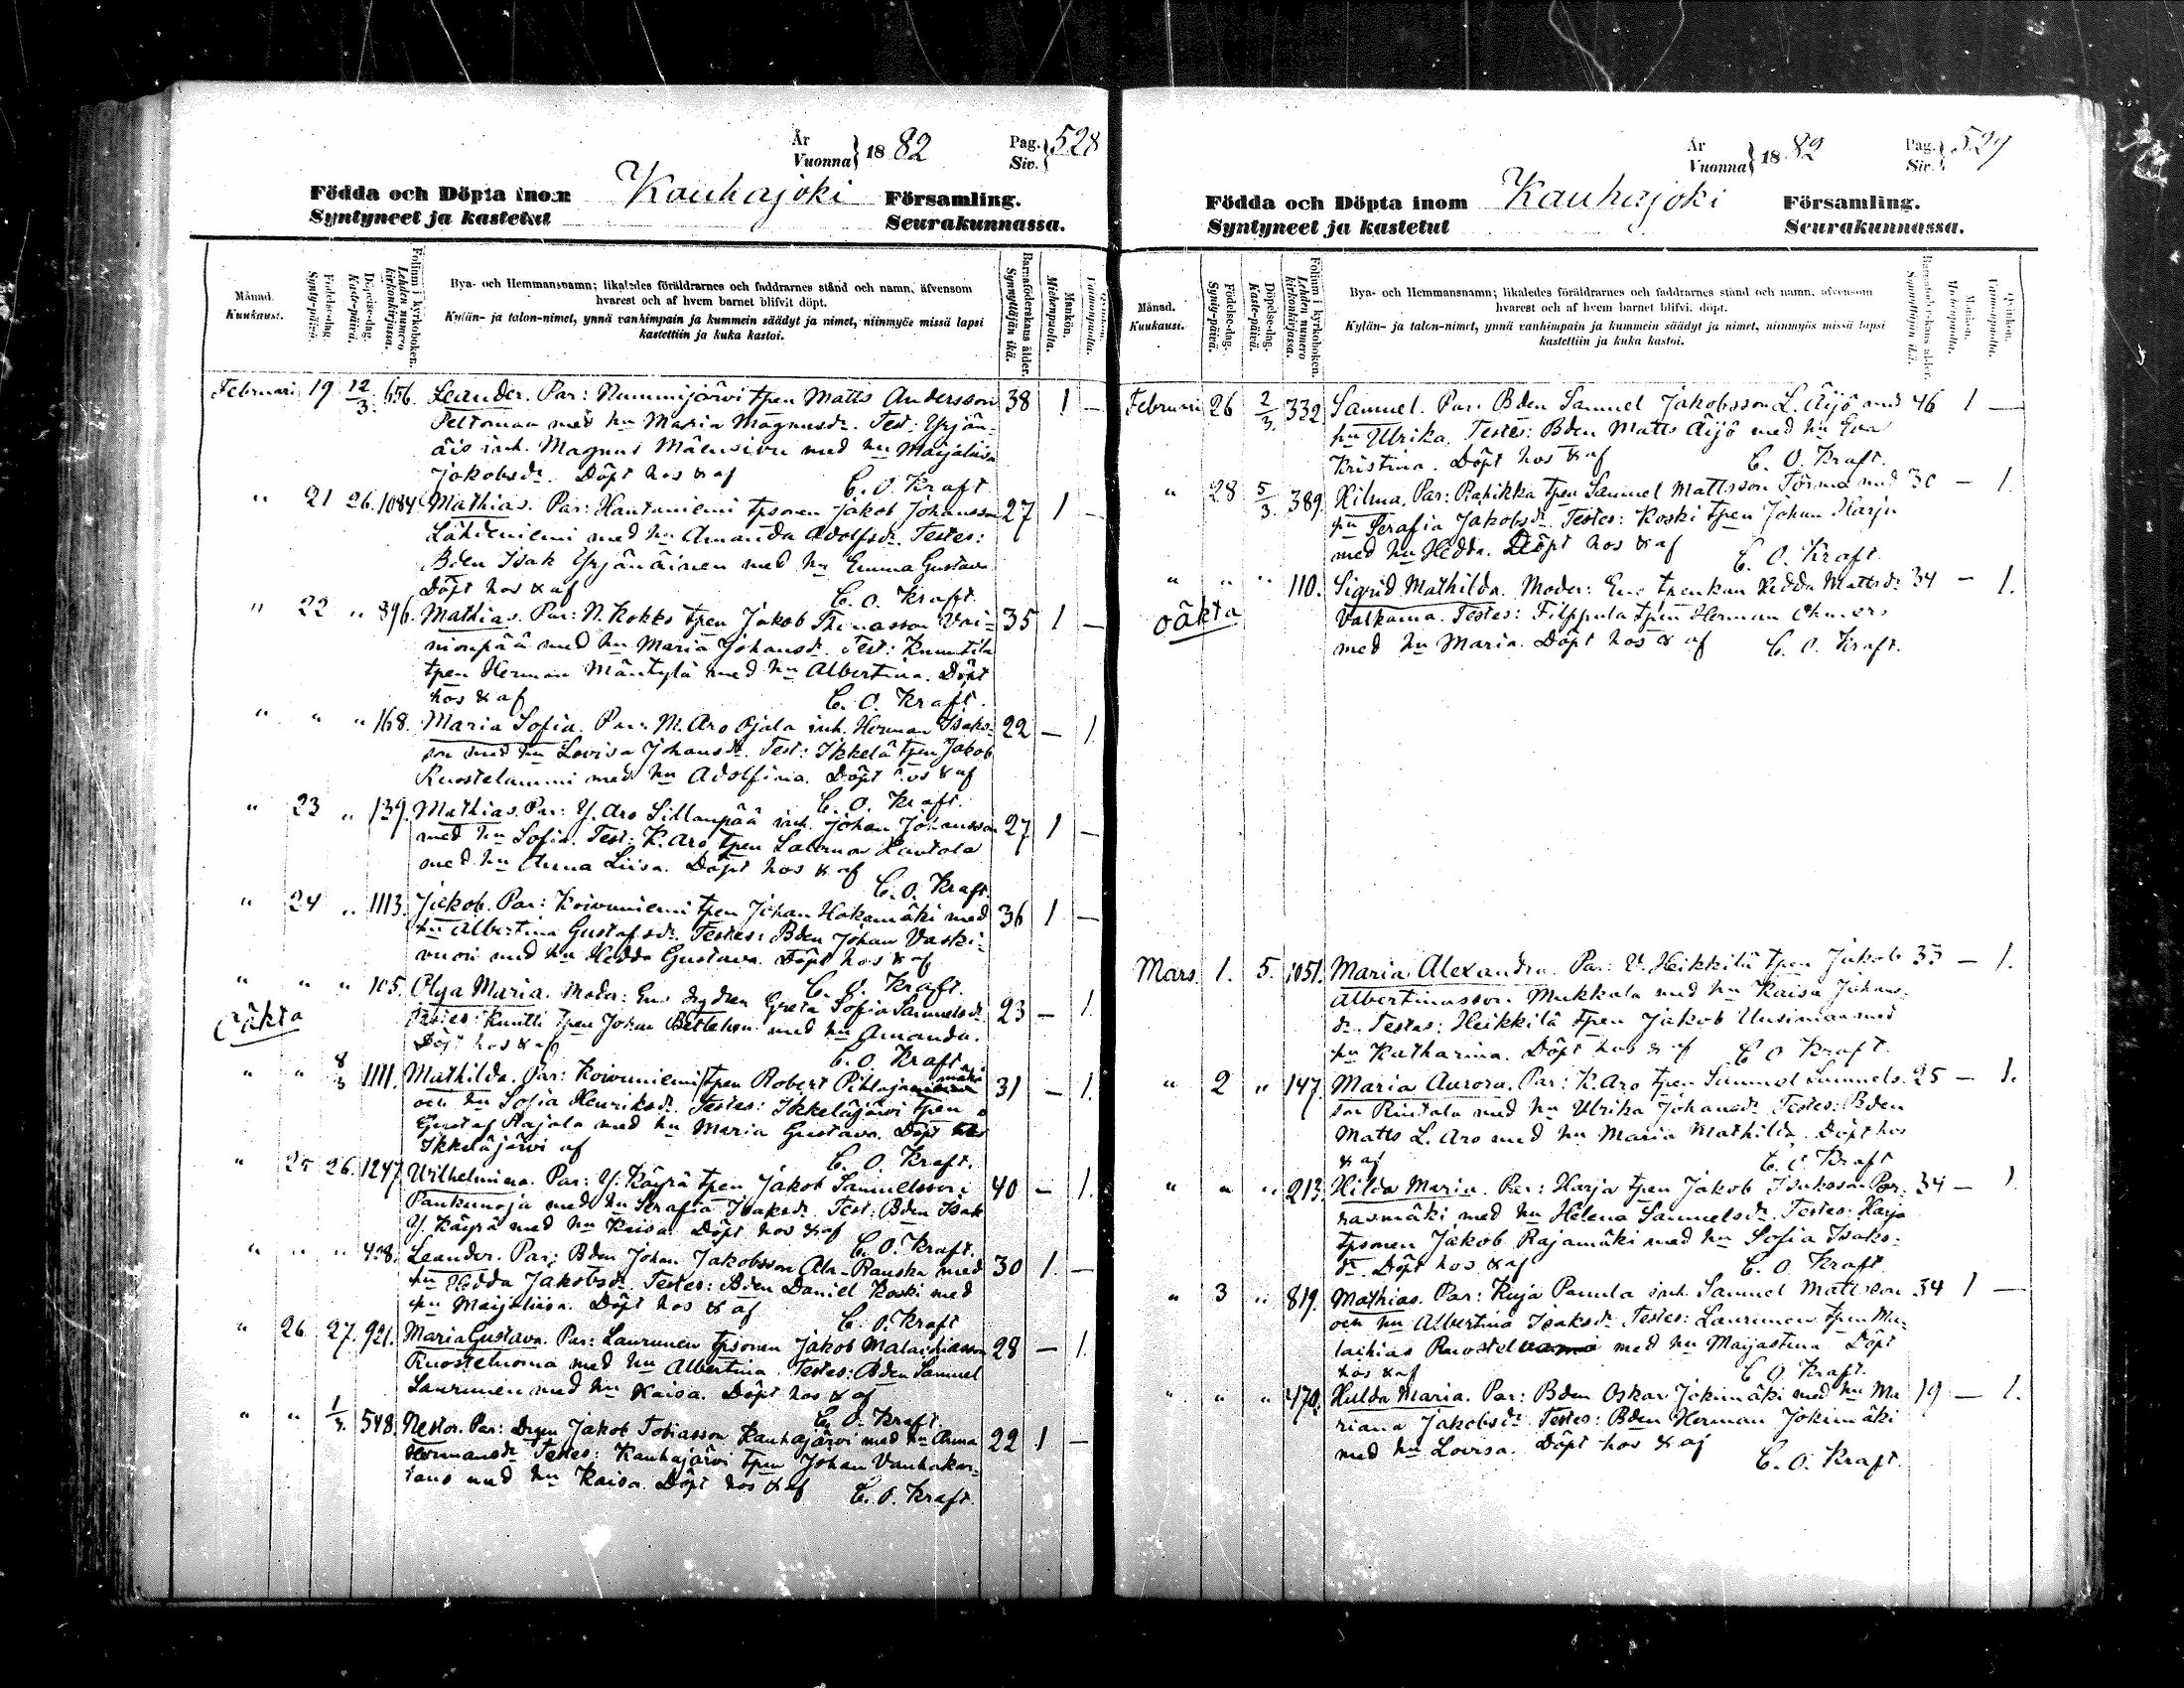 År
Vuonna } 1882 Pag. Siv. } 528
Födda och Döpta inom Kauhajoki Församling.
Syntyneet ja kastetut Seurakunnassa.
Månad. Kuukausi.
Födelse-dag. Synty-päivä.
Döpelse-dag. Kaste-päivä.
Folium i kyrkoboken. Lehden numero kirkonkirjassa.
Bya- och Hemmansnamn; likaledes föräldrarnes och faddrarnes stånd och namn, äfvensom
hvarest och af hvem barnet blifvit döpt.
Kylän- ja talon-nimet, ynnä vanhimpain ja kummein säädyt ja nimet, niinmyös missä lapsi
kastettiin ja kuka kastoi.
Barnaföderskans ålder. Synnyttäjän ikä.
Mankön. Miehenpuolta.
Qvinkön. Vaimonpuolta.
Februari 19 12/3. 656. Leander. Par: Nummijärvi tpen Matts Andersson 38 1 —
Peltomaa med hu Maria Magnusdr. Test: Yrjän-
äis inh. Magnus Mälusivu med hu Maijaliisa
Jakobsdr. Döpt hos & af C. O. Kraft
" 21 26. 1084 Mathias. Par: Hautaniemi tpsonen Jakob Johansson 27 1 —
Lähdeniemi med hu Amanda Adolfsdr. Testes:
Bden Isak Yrjänäinen med hu Emma Gustava
Döpt hos & af C. O. Kraft.
" 22 " 896. Mathias. Par: N. Kokko tpen Jakob Thomasson Vai- 35 1 —
nionpää med hu Maria Johansdr. Test: Knuutila
tpen Herman Mäntylä med hu Albertina. Döpt
hos & af C. O. Kraft.
" " " 168. Maria Sofia. Par: M. Aro Ojala inh. Herman Isaks- 22 — 1.
son med hu Lovisa Johansdr. Test: Ikkelä tpen Jakob
Ruostelammi med hu Adolfina. Döpt hos & af
C. O. Kraft.
" 23 " 139. Mathias. Par: Y. Aro Sillanpää inh. Johan Johansson 27 1 —
med hu Sofia. Test: K. Aro tpen Salomon Hautala
med hu Anna Liisa. Döpt hos & af
C. O. Kraft.
" 24 " 1113. Jakob. Par: Koivuniemi tpen Johan Hakamäki med 36 1 —
hu Albertina Gustafsdr. Testes: Bden Johan Vaski-
vuori med hu Hedda Gustava. Döpt hos & af
C. O. Kraft.
" " " 105. Olga Maria. Moder: Ens Greta Sofia Samuelsdr. 23 — 1.
oäkta Testes: Knutti tpen Johan Betlehem med hu Amanda.
Döpt hos & af C. O. Kraft.
" " 8/3 1111. Mathilda. Par: Koivuniemi tpen Robert Pihlajamäki 31 — 1.
och hu Sofia Henriksdr. Testes: Ikkeläjärvi tpen
Gustaf Rajala med hu Maria Gustava. Döpt
Ikkeläjärvi af C. O. Kraft.
" 25 26. 1247 Wilhelmina. Par: Y. Käyrä tpen Jakob Samuelsson 40 — 1.
Pankunoja med hu Serafia Isaksdr. Test: Bden Isak
Y. Käyrä med hu Kaisa. Döpt hos & af
C. O. Kraft.
" " " 428. Leander. Par: Bden Johan Jakobsson Ala-Panska med 30 1. —
hu Hedda Jakobsdr. Testes: Bden Daniel Koski med
hu Maijaliisa. Döpt hos & af C. O. Kraft
" 26 27. 921. Maria Gustava. Par: Laurunen tpsonen Jakob Malachiasson 28 — 1.
Ruosteluoma med hu Albertina. Testes: Bden Samuel
Laurunen med hu Kaisa. Döpt hos & af
C. O. Kraft.
" " 1/3. 548. Nestor. Par: Drgen Jakob Tobiasson Kauhajärvi med hu Anna 22 1 —
Hermansdr. Testes: Kauhajärvi tpen Johan Vanhakar-
tano med hu Kaisa. Döpt hos & af C. O. Kraft.
År
Vuonna } 1882 Pag. Siv. } 529
Födda och Döpta inom Kauhajoki Församling.
Syntyneet ja kastetut Seurakunnassa.
Månad. Kuukausi.
Födelse-dag. Synty-päivä.
Döpelse-dag. Kaste-päivä.
Folium i kyrkoboken. Lehden numero kirkonkirjassa.
Bya- och Hemmansnamn; likaledes föräldrarnes och faddrarnes stånd och namn, äfvensom
hvarest och af hvem barnet blifvit döpt.
Kylän- ja talon-nimet, ynnä vanhimpain ja kummein säädyt ja nimet, niinmyös missä lapsi
kastettiin ja kuka kastoi.
Barnaföderskans ålder. Synnyttäjän ikä.
Mankön. Miehenpuolta.
Qvinkön. Vaimonpuolta.
Februari 26 2/3. 332. Samuel. Par. Bden Samuel Jakobsson L. Äijö med 46 1 —
hu Ulrika. Testes: Bden Matts Äijö med hu Eva
Kristina. Döpt hos & af C. O. Kraft.
" 28 5/3. 389. Hilma. Par: Päpikka tpen Samuel Mattsson Törmä med 30 — 1.
hu Serafia Jakobsdr. Testes: Koski tpen Johan Harju
med hu Hedda. Döpt hos & af C. O. Kraft.
" " " 110. Sigrid Mathilda. Moder: Ens tpenkan Hedda Mattsdr. 34 — 1.
oäkta Valkama. Testes: Filppula tpen Herman
med hu Maria. Döpt hos & af C. O. Kraft.
Mars. 1. 5. 1051. Maria Alexandra. Par: V. Heikkilä tpen Jakob 35 — 1.
Albertinusson Mukkala med hu Kaisa Johans-
dr. Testes: Heikkilä tpen Jakob Uusimaa med
hu Katharina. Döpt hos & af C O Kraft.
" 2 " 147. Maria Aurora. Par: K. Aro tpen Samuel Samuels- 25 — 1.
son Rintala med hu Ulrika Johansdr. Testes: Bden
Matts L. Aro med hu Maria Mathilda. Döpt hos
& af C. O. Kraft
" " " 213. Hilda Maria. Par: Harja tpen Jakob Isaksson Por- 34 — 1.
rasmäki med hu Helena Samuelsdr. Testes: Harja
tpsonen Jakob Rajamäki med hu Sofia Isaks-
dr. Döpt hos & af C. O. Kraft.
" 3 " 819. Mathias. Par: Kuja Panula inh. Samuel Mattsson 34 1 —
och hu Albertina Isaksdr. Testes: Laurunen tpen Ma-
lachias med hu Maijastina Döpt
hos & af C O. Kraft.
" " " 470. Hulda Maria. Par: Bden Oskar Jokimäki med hu Ma 19 — 1.
riana Jakobsdr. Testes: Bden Herman Jokimäki
med hu Lovisa. Döpt hos & af
C. O. Kraft.